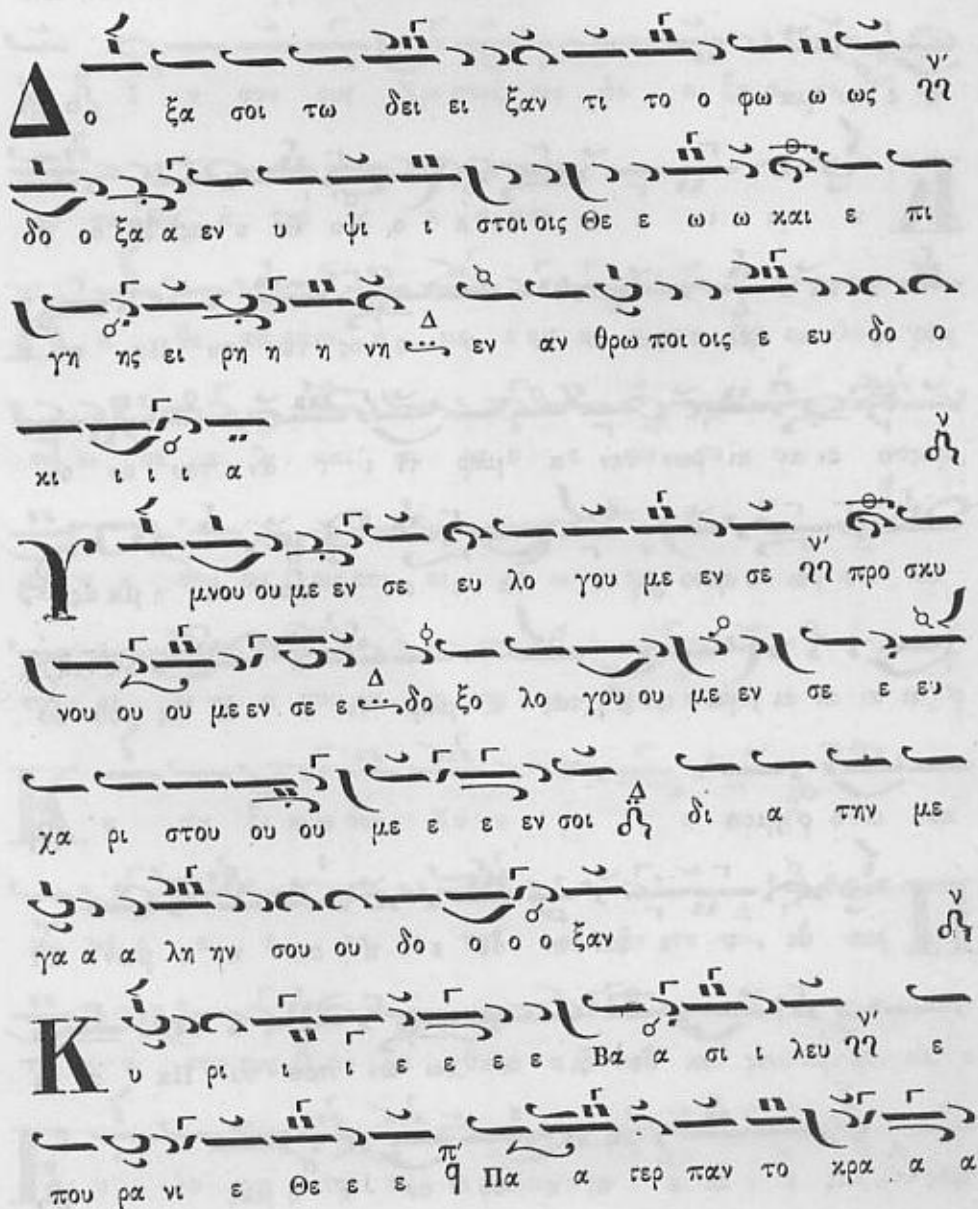 Δ ο ξα σοι τω δει ει ξαν τι το ο φω ω ως ν'
δο ο ξα α εν υ ψι ι στοι οις Θε ε ω ω και ε πι
γη ης ει ρη η η νη Δ εν αν θρω ποι οις ε ευ δο ο
κι ι ι ι α ν
Υ μνου ου με εν σε ευ λο γου με εν σε ν' προ σκυ
νου ου ου με εν σε ε Δ δο ξο λο γου ου με εν σε ε ευ
χα ρι στου ου ου με ε ε εν σοι Δ δι α την με
γα α α λη ην σου ου δο ο ο ο ξαν ν
Κ υ ρι ι ι ε ε ε ε Βα α σι ι λευ ν' ε
που ρα νι ε Θε ε ε π' q Πα α τερ παν το κρα α α